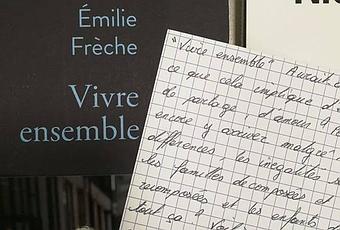 Émilie
Frèche
Vivre
ensemble
"Vivre ensemble" Aurait-
ce que cela implique d'
de partage, d'amour à
encore y arriver malgré
différences, les inégalités
les familles décomposées et
recomposées et les enfants d
tout ça ?